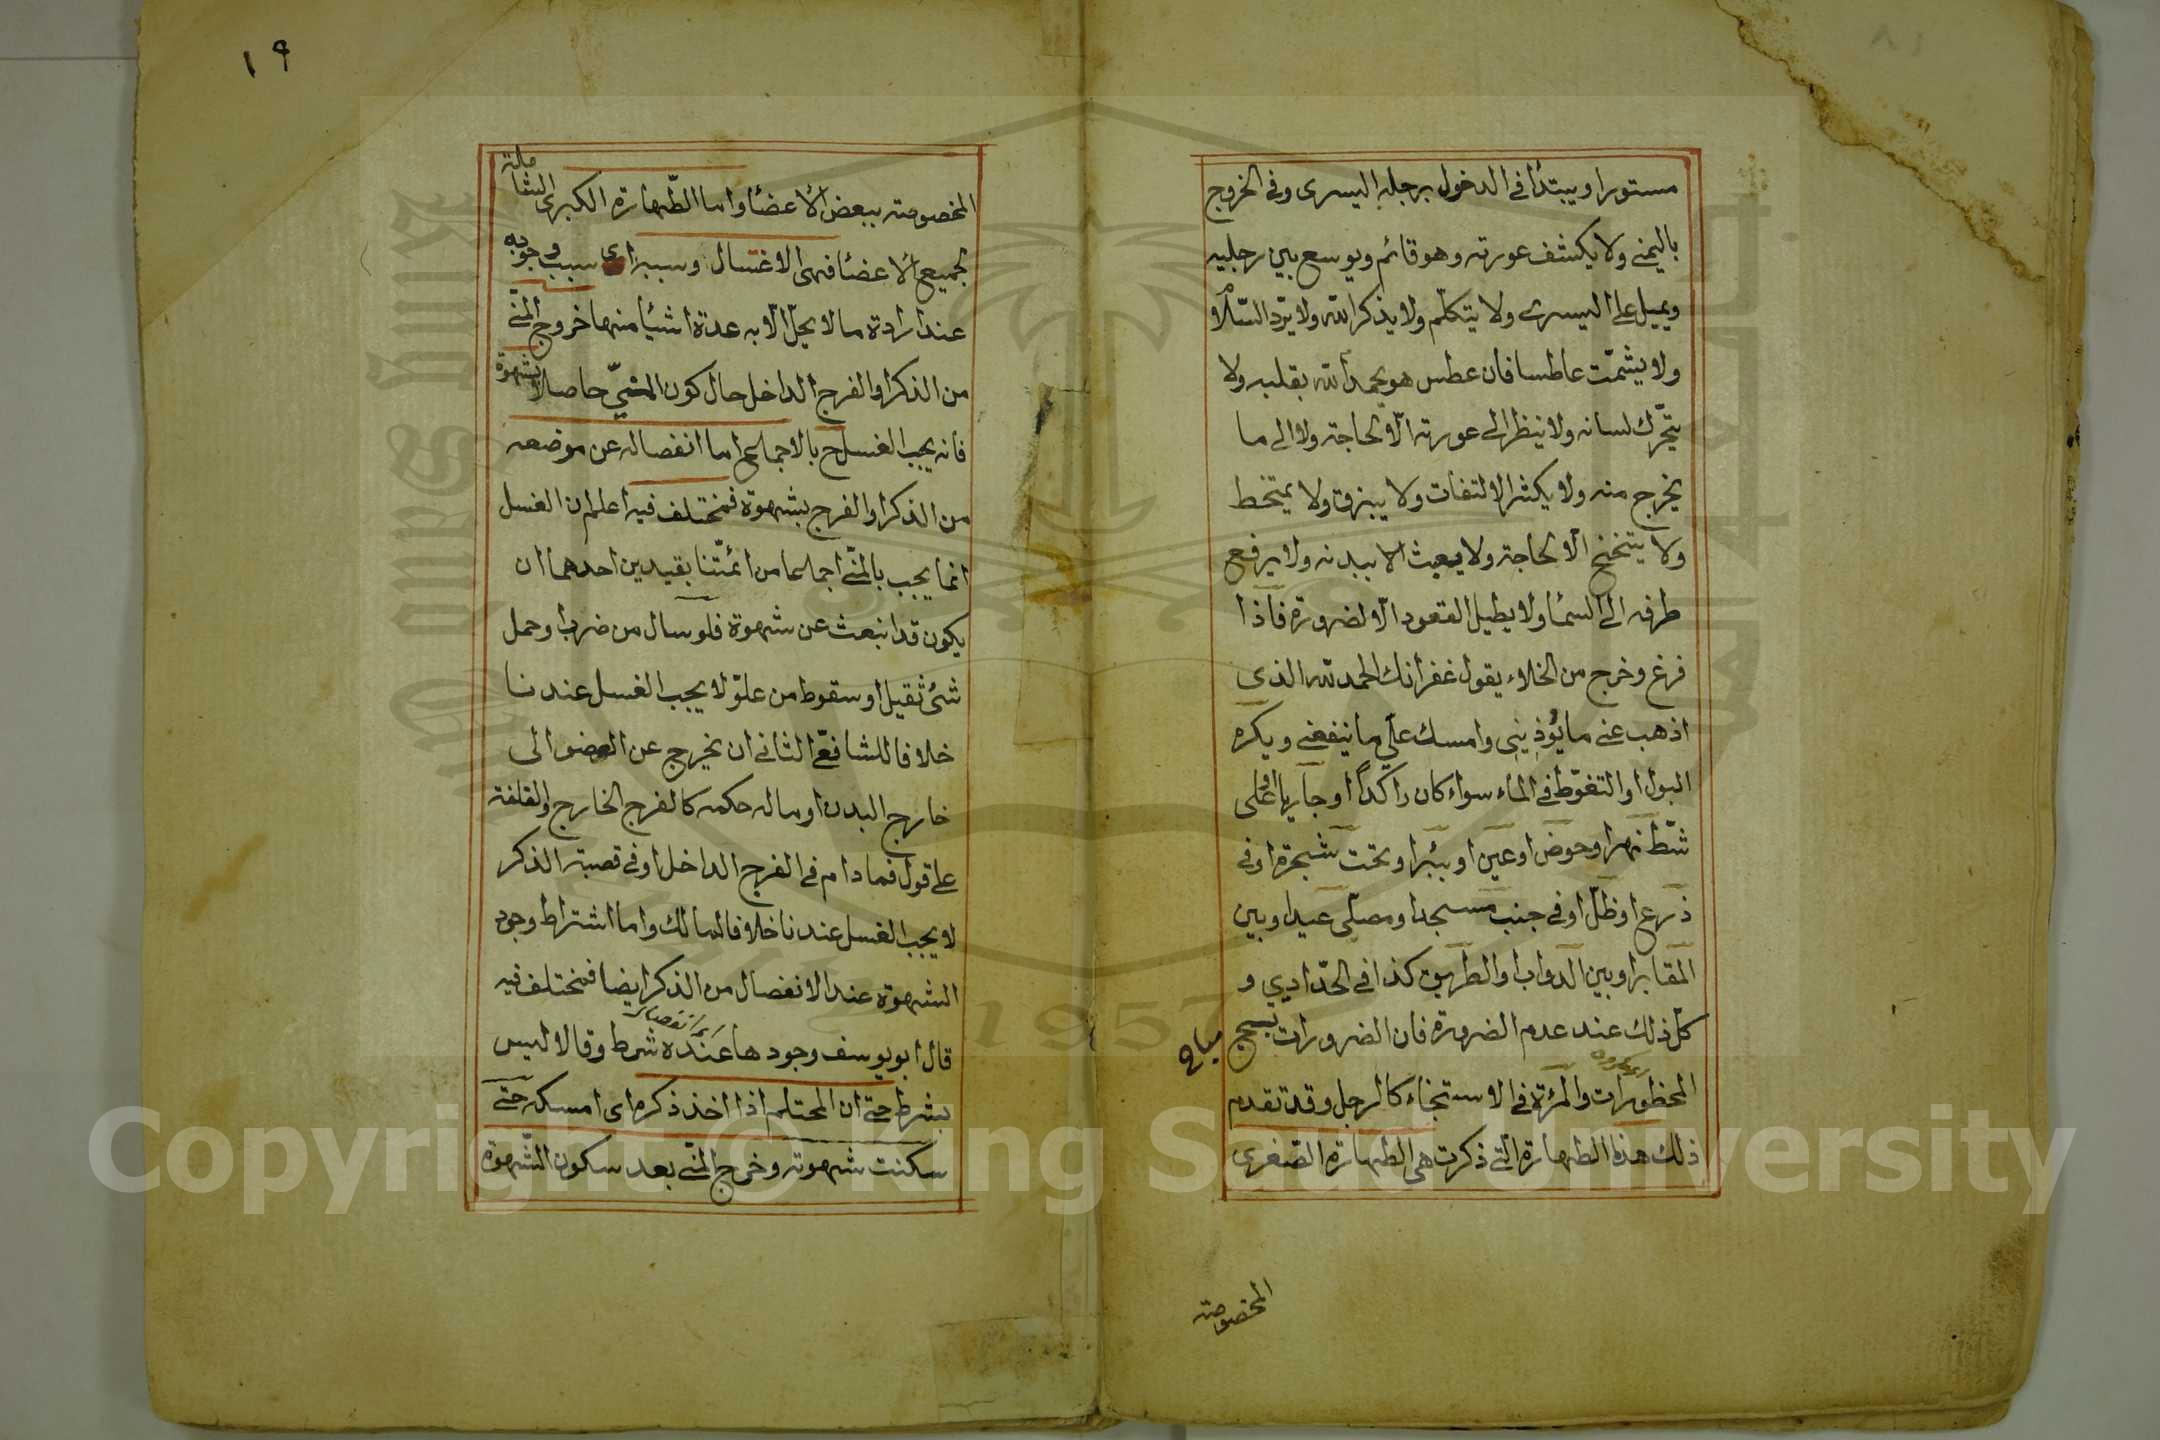 مستورا ويبتدأ في الدخول برجله اليسرى وفي الخروج
باليمنى ولا يكشف عورته وهو قائم ويوسع بين رجليه
ويميل على اليسرى ولا يتكلم ولا يذكر الله ولا يرد السلام
ولا يشمت عاطسا فان عطس هو يحمد الله بقلبه ولا
يحرك لسانه ولا ينظر الى عورته الا لحاجة ولا الى ما
يخرج منه ولا يكثر الالتفات ولا يبزق ولا يمتخط
ولا يتنحنح الا لحاجة ولا يعبث ببدنه ولا يرفع
طرفه الى السماء ولا يطيل القعود الا لضرورة فاذا
فرغ وخرج من الخلاء يقول غفرانك الحمد لله الذي
اذهب عني ما يؤذيني وامسك علي ما ينفعني ويكره
البول او التغوط في الماء سواء كان راكدا او جاريا او على
شط نهر او حوض او عين او بئر او تحت شجرة او في
زرع او ظل او في جنب مسجد او مصلى عيد او بين
المقابر او بين الدواب او الطريق كذا في الحدادي و
كل ذلك عند عدم الضرورة فان الضرورات تبيح
مباح
المحظورات والمرأة في الاستنجاء كالرجل وقد تقدم
ذلك هذه الطهارة التي ذكرت هي الطهارة الصغرى
المخصوصة
١٩
المخصوصة ببعض الأعضأ واما الطهارة الكبرى الشاملة
لجميع الأعضأ فهي الاغتسال وسببه اي سبب وجوبه
عند ارادة ما لا يحل الا به عدة اشيأ منها خروج المني
من الذكر او الفرج الداخل حال كون المني حاصلا بشهوة
فانه يجب الغسل ح بالاجماع اما انفصاله عن موضعه
من الذكر او الفرج بشهوة فمختلف فيه اعلم ان الغسل
انما يجب بالمني اجماعا من ائمتنا بقيدين احدهما ان
يكون قد انبعث عن شهوة فلو سال من ضرب او حمل
شئ ثقيل او سقوط من علو لا يجب الغسل عندنا
خلافا للشافعي الثاني ان يخرج عن العضو الى
خارج البدن او ماله حكمه كالفرج الخارج والقلفة
على قول فما دام في الفرج الداخل او في قصبة الذكر
لا يجب الغسل عندنا خلافا لمالك واما اشتراط وجود
الشهوة عند الانفصال من الذكر ايضا فمختلف فيه
قال ابو يوسف وجودها عنده شرط وقالا ليس
بشرط حتى ان المحتلم اذا اخذ ذكره اى امسكه حتى
سكنت شهوته وخرج المني بعد سكون الشهوة
Copyright © King Saud University
1957